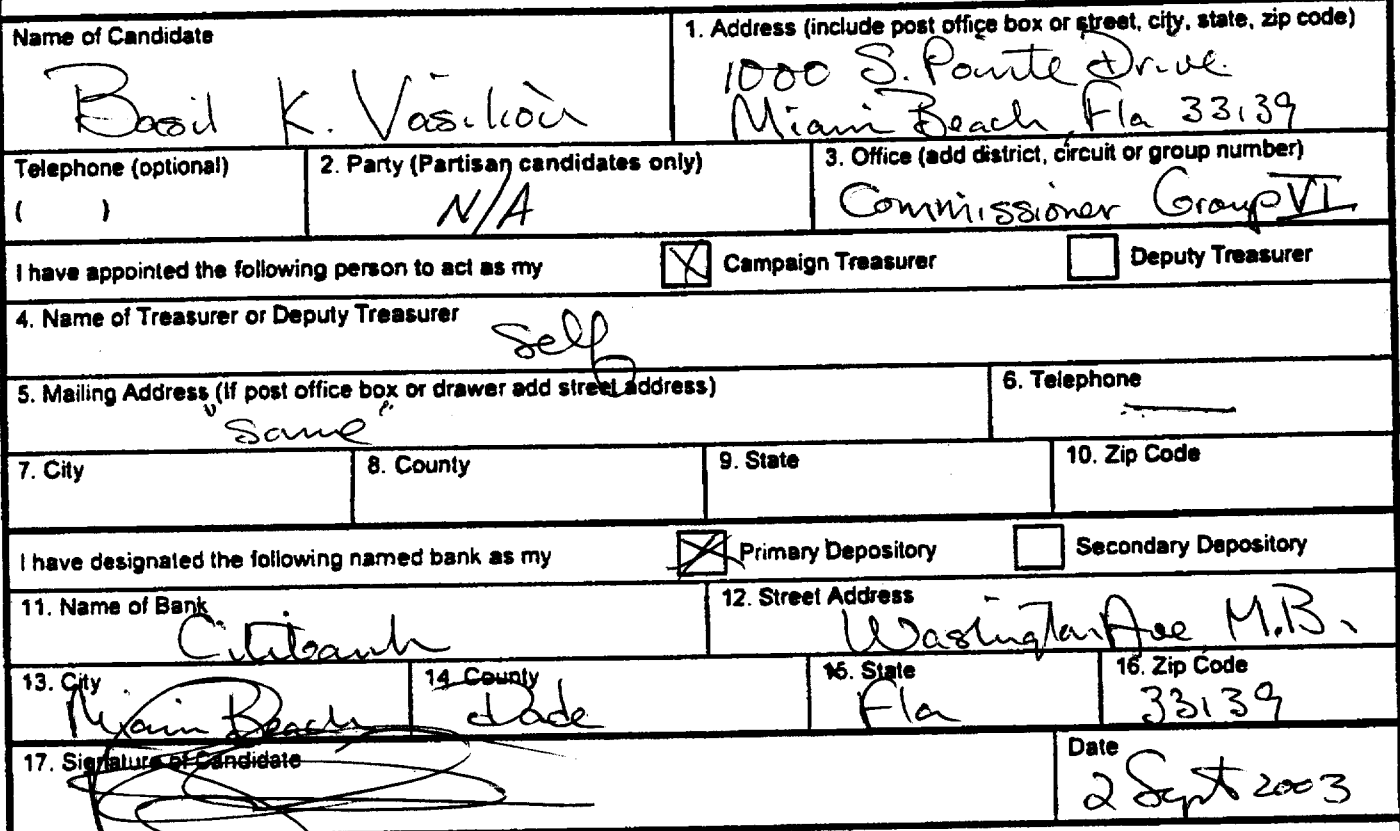 Name of Candidate
Basil K. Vasiliou
1. Address (include post office box or street, city, state, zip code)
1000 S. Pointe Drive
Miami Beach, Fla 33139
Telephone (optional)
( )
2. Party (Partisan candidates only)
N/A
3. Office (add district, circuit or group number)
Commissioner Group VI
I have appointed the following person to act as my
X Campaign Treasurer
Deputy Treasurer
4. Name of Treasurer or Deputy Treasurer
Self
5. Mailing Address (If post office box or drawer add street address)
"Same"
6. Telephone
—
7. City
8. County
9. State
10. Zip Code
I have designated the following named bank as my
X Primary Depository
Secondary Depository
11. Name of Bank
Citibank
12. Street Address
Washington Ave M.B.
13. City
Miami Beach
14. County
Dade
15. State
Fla
16. Zip Code
33139
17. Signature of Candidate
Date
2 Sept 2003